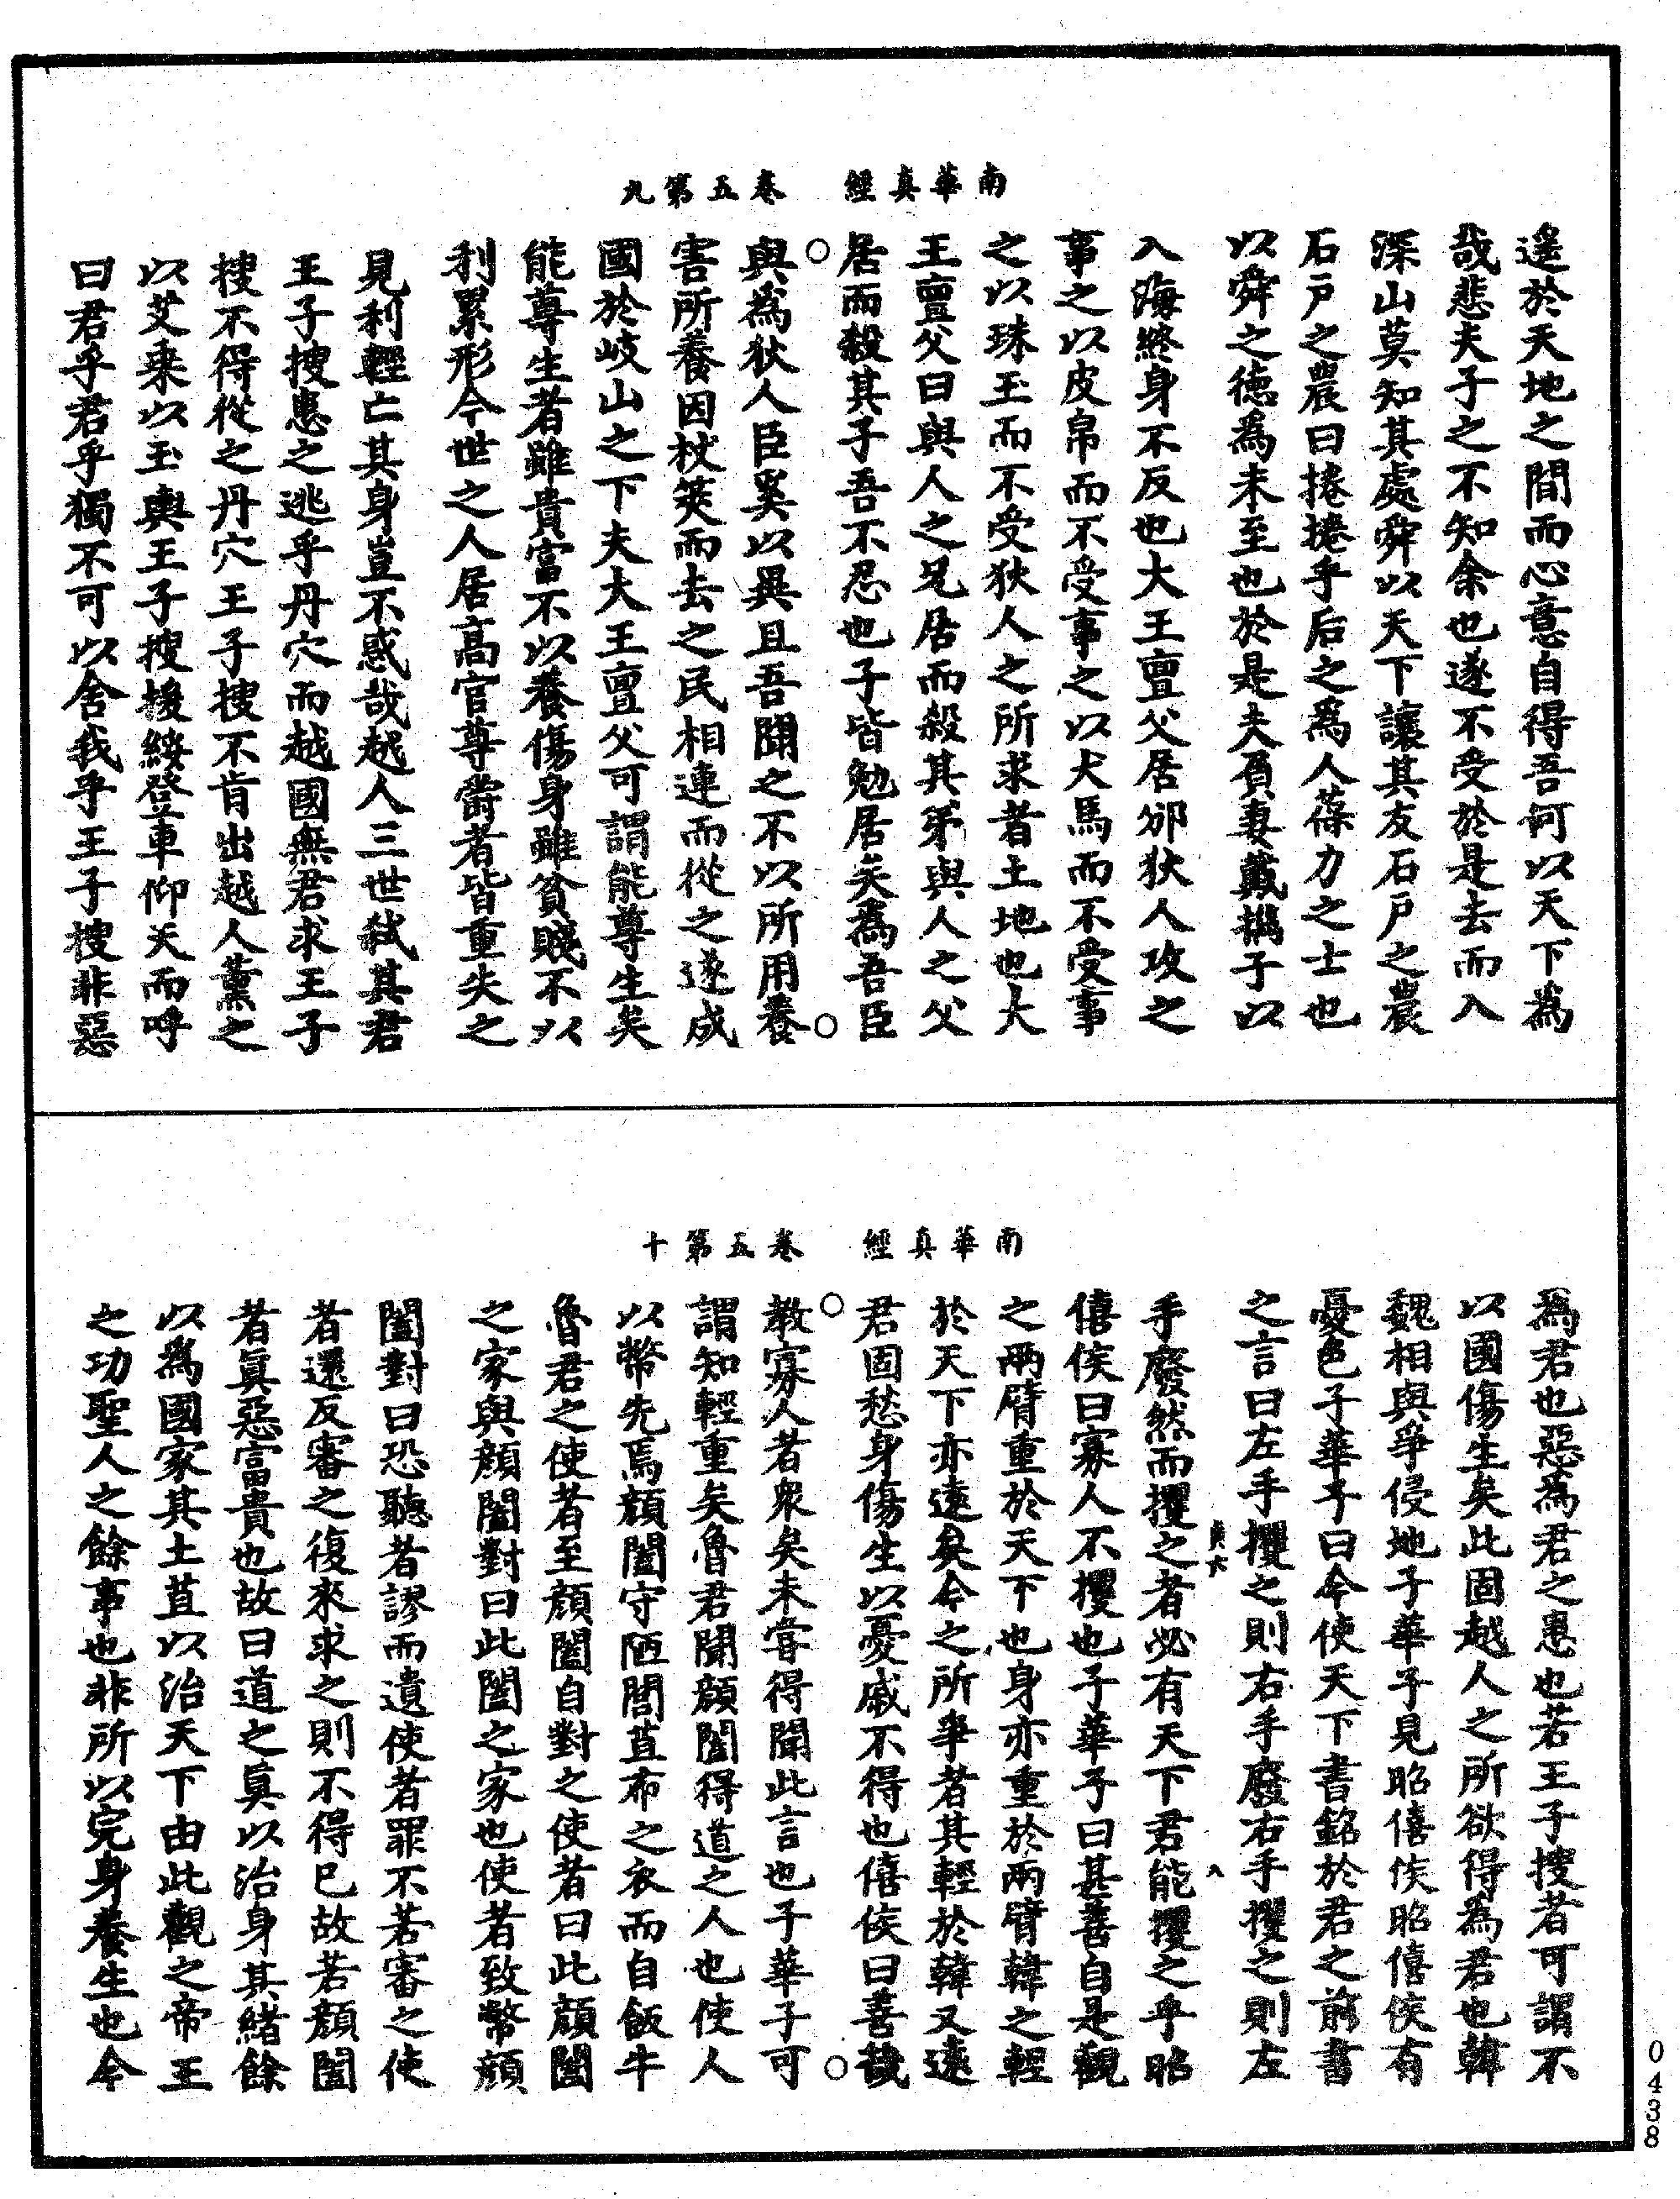 南華真經　卷五第九
遥於天地之間而心意自得吾何以天下為
哉悲夫子之不知余也遂不受於是去而入
深山莫知其處舜以天下讓其友石戶之農
石戶之農曰捲捲乎后之爲人葆力之士也
以舜之德爲未至也於是夫負妻戴攜子以
入海終身不反也大王亶父居邠狄人攻之
事之以皮帛而不受事之以犬馬而不受事
之以珠玉而不受狄人之所求者土地也大
王亶父曰與人之兄居而殺其弟與人之父
居而殺其子吾不忍也子皆勉居矣為吾臣
與為狄人臣奚以異且吾聞之不以所用養
害所養因杖筴而去之民相連而從之遂成
國於岐山之下夫大王亶父可謂能尊生矣
能尊生者雖貴富不以養傷身雖貧賤不以
利累形今世之人居高官尊爵者皆重失之
見利輕亡其身豈不惑哉越人三世弒其君
王子搜患之逃乎丹穴而越國無君求王子
搜不得從之丹穴王子搜不肯出越人薰之
以艾乘以玉輿王子搜援綏登車仰天而呼
曰君乎君乎獨不可以舍我乎王子搜非惡
南華真經　卷五第十
為君也惡為君之患也若王子搜者可謂不
以國傷生矣此固越人之所欲得為君也韓
魏相與爭侵地子華子見昭僖侯昭僖侯有
憂色子華子曰今使天下書銘於君之前書
之言曰左手攫之則右手廢右手攫之則左
手廢然而攫之者必有天下君能攫之乎昭
僖侯曰寡人不攫也子華子曰甚善自是觀
之兩臂重於天下也身亦重於兩臂韓之輕
於天下亦遠矣今之所爭者其輕於韓又遠
君固愁身傷生以憂戚不得也僖侯曰善哉
教寡人者衆矣未甞得聞此言也子華子可
謂知輕重矣魯君聞顔闔得道之人也使人
以幣先焉顔闔守陋閭苴布之衣而自飯牛
魯君之使者至顔闔自對之使者曰此顔闔
之家與顔闔對曰此闔之家也使者致幣顔
闔對曰恐聽者謬而遺使者罪不若審之使
者還反審之復來求之則不得已故若顔闔
者真惡富貴也故曰道之真以治身其緒餘
以爲國家其土苴以治天下由此觀之帝王
之功聖人之餘事也非所以完身養生也今
0438